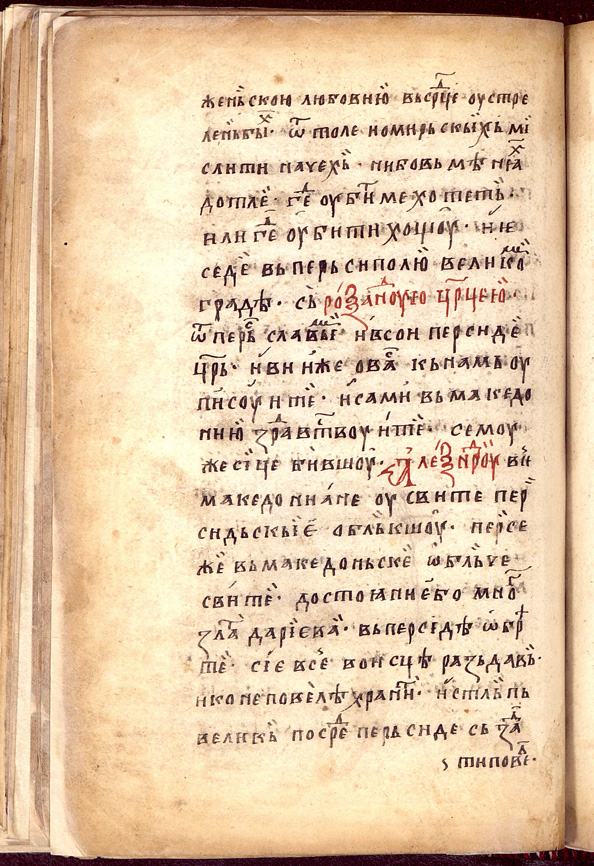 женьскою любовїю вьср҃це оустре
леньбы҃х · ѿ толе иомирьскыхь мї
слити начехь · нибовь мѣ нра҃х
дотлѐ · ге҃ оубїти ме хотеть ·
или ге҃ оубити хощоу · и҆н̾е
седе вьперьсиполю велико҃м
градѣ · сь розан҃доую цр҃цею
ѿ перь҃с славьїе · и҆всои персиде
цр҃ь · и҆ви и҆же ова҃с кьнамь оу
писоуите · и҆сами вьмакедо
нїю здрав҃твоуите · семоу
же сїце бившоу · Але҃зндроу вси
македониане оу свите пер
сидьскыїе облькшоу · персе
же вьмакедоньске ѡбльче
свите · достоꙗнїебо мно҃г
зла҃т дарїева · вьперсїдѣ ѡбр҃
те · сїе все воисцѣ раздавь ·
никоне повелѣ храни҃т · и҆стльпь
великь посре҃д перьсиде сь зла҃
типове҃л ·